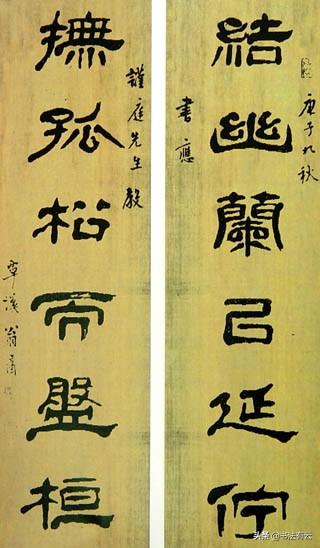 庚子九秋
結幽蘭已延佇
書應
謹庭先生教
撫孤松而盤桓
覃溪翁方綱
头条 @书法有云